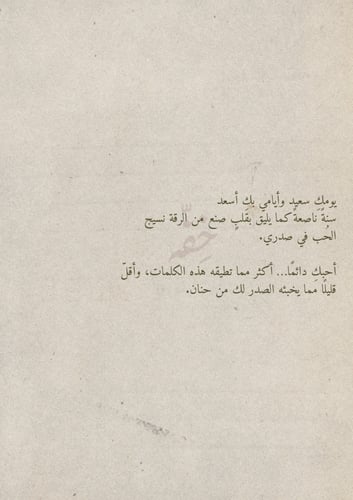 يومكِ سعيد وأيامي بكِ أسعد
سنةً ناصعةً كما يليق بقلبٍ صنع من الرقة نسيج
الحُب في صدري.
أحبكِ دائمًا... أكثر مما تطيقه هذه الكلمات، وأقلّ
قليلًا مما يخبئه الصدر لك من حنان.